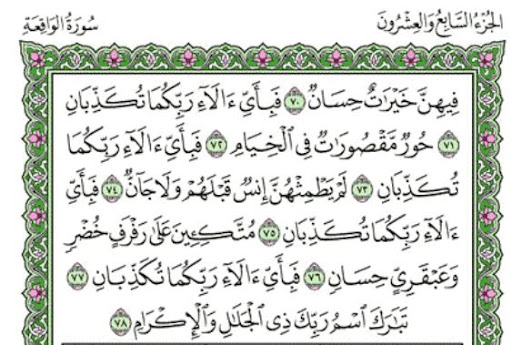 سُورَةُ الْوَاقِعَةِ
الجُزْءُ السَّابِعُ وَالْعِشْرُونَ
فِيهِنَّ خَيْرَٰتٌ حِسَانٌ ۝٧٠ فَبِأَىِّ ءَالَآءِ رَبِّكُمَا تُكَذِّبَانِ
۝٧١ حُورٌ مَّقْصُورَٰتٌ فِى ٱلْخِيَامِ ۝٧٢ فَبِأَىِّ ءَالَآءِ رَبِّكُمَا
تُكَذِّبَانِ ۝٧٣ لَمْ يَطْمِثْهُنَّ إِنسٌ قَبْلَهُمْ وَلَا جَآنٌّ ۝٧٤ فَبِأَىِّ
ءَالَآءِ رَبِّكُمَا تُكَذِّبَانِ ۝٧٥ مُتَّكِـِٔينَ عَلَىٰ رَفْرَفٍ خُضْرٍ
وَعَبْقَرِىٍّ حِسَانٍ ۝٧٦ فَبِأَىِّ ءَالَآءِ رَبِّكُمَا تُكَذِّبَانِ ۝٧٧
تَبَٰرَكَ ٱسْمُ رَبِّكَ ذِى ٱلْجَلَٰلِ وَٱلْإِكْرَامِ ۝٧٨